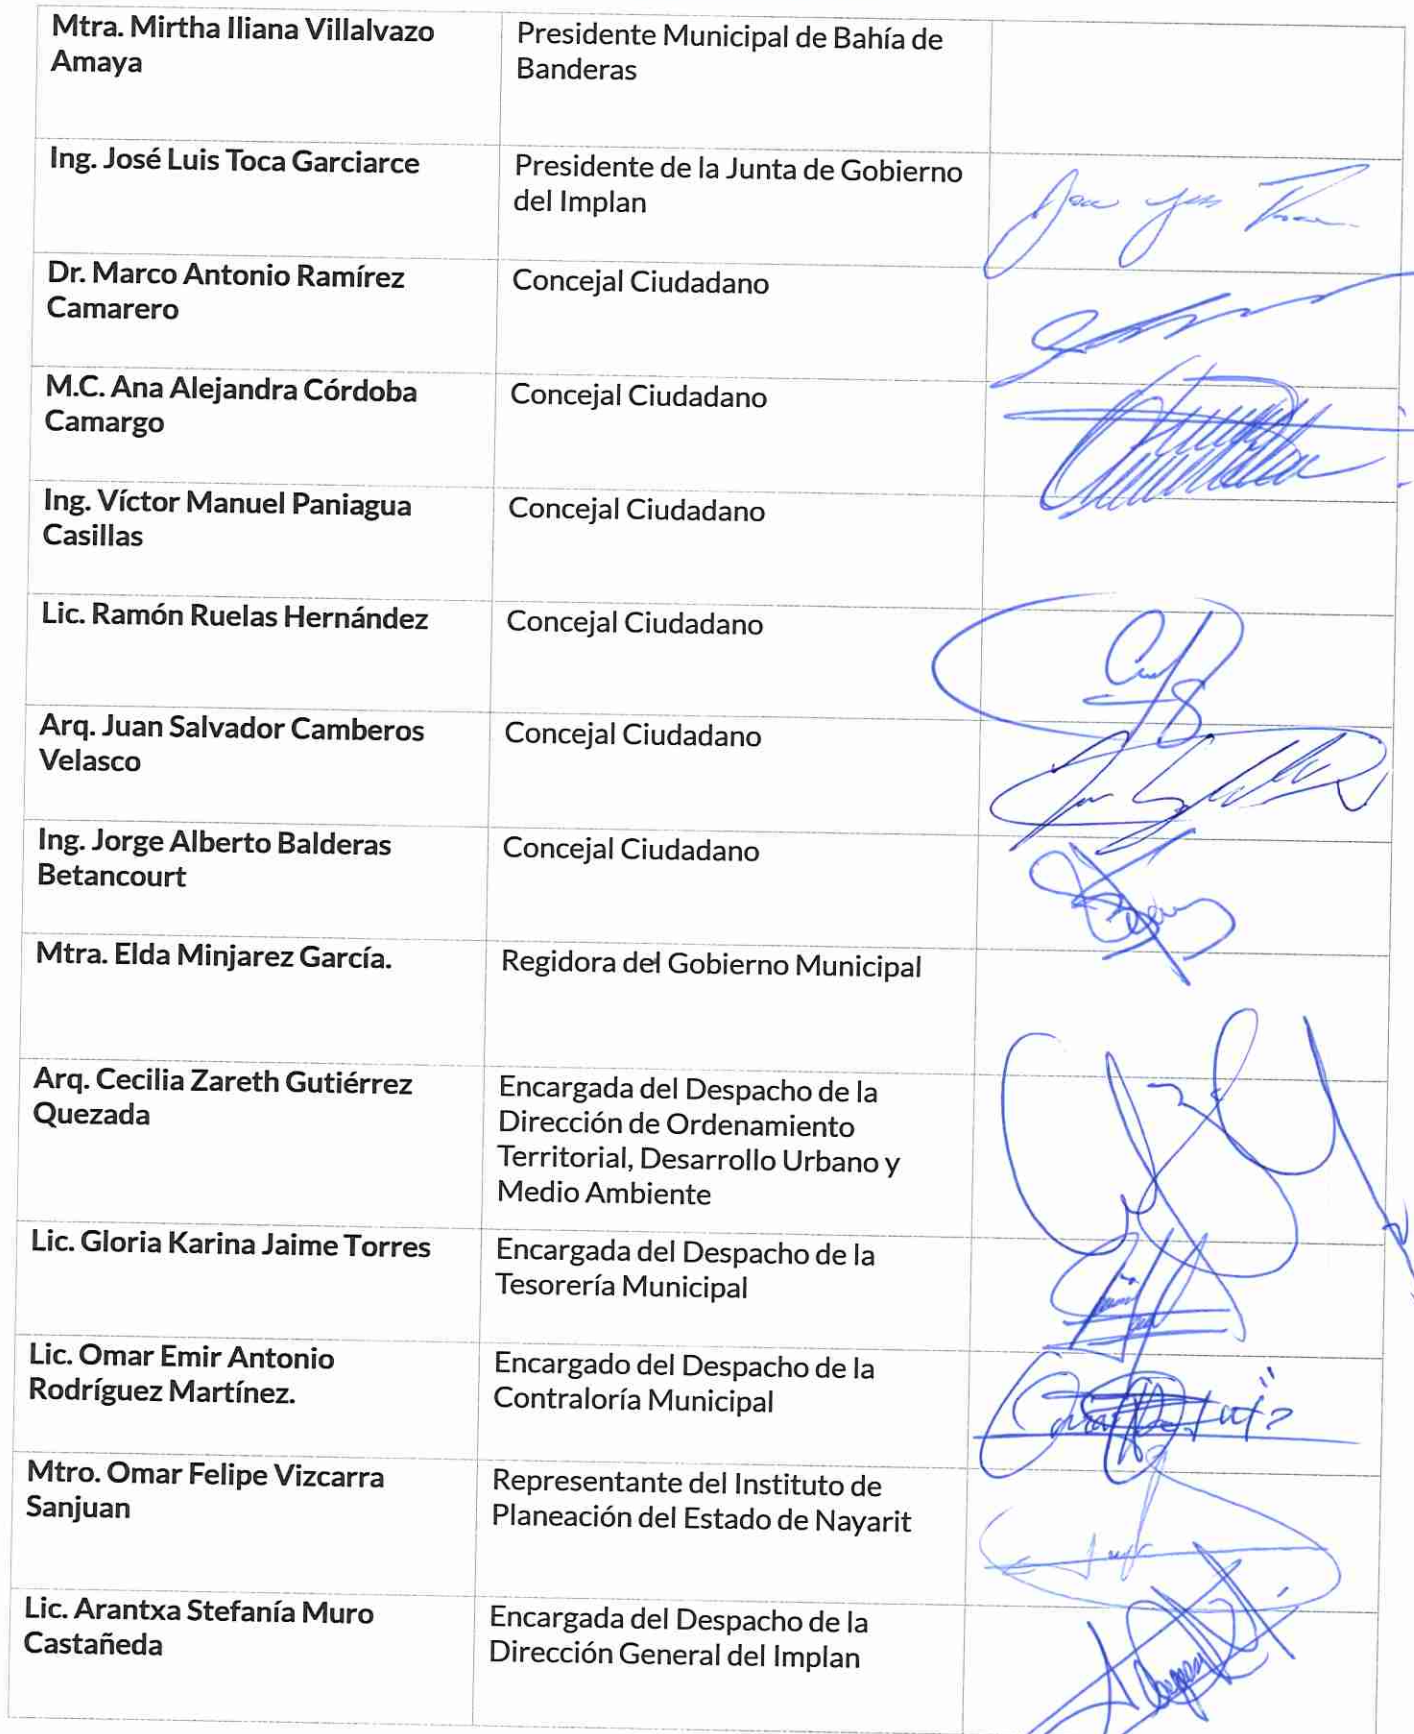 Mtra. Mirtha Iliana Villalvazo
Amaya
Presidente Municipal de Bahía de
Banderas
Ing. José Luis Toca Garciarce
Presidente de la Junta de Gobierno
del Implan
Dr. Marco Antonio Ramírez
Camarero
Concejal Ciudadano
M.C. Ana Alejandra Córdoba
Camargo
Concejal Ciudadano
Ing. Víctor Manuel Paniagua
Casillas
Concejal Ciudadano
Lic. Ramón Ruelas Hernández
Concejal Ciudadano
Arq. Juan Salvador Camberos
Velasco
Concejal Ciudadano
Ing. Jorge Alberto Balderas
Betancourt
Concejal Ciudadano
Mtra. Elda Minjarez García.
Regidora del Gobierno Municipal
Arq. Cecilia Zareth Gutiérrez
Quezada
Encargada del Despacho de la
Dirección de Ordenamiento
Territorial, Desarrollo Urbano y
Medio Ambiente
Lic. Gloria Karina Jaime Torres
Encargada del Despacho de la
Tesorería Municipal
Lic. Omar Emir Antonio
Rodríguez Martínez.
Encargado del Despacho de la
Contraloría Municipal
Mtro. Omar Felipe Vizcarra
Sanjuan
Representante del Instituto de
Planeación del Estado de Nayarit
Lic. Arantxa Stefanía Muro
Castañeda
Encargada del Despacho de la
Dirección General del Implan